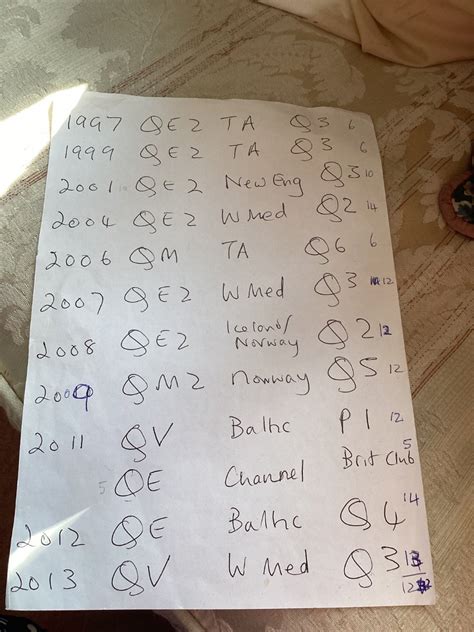 1997 QE2 TA Q3 6
1999 QE2 TA Q3 6
2001 QE2 New Eng Q3 10
2004 QE2 W Med Q2 14
2006 QM TA Q6 6
2007 QE2 W Med Q3 12
2008 QE2 Iceland/ Norway Q2 12
2009 QM2 Norway Q5 12
2011 QV Baltic P1 12
5 QE Channel Brit Club 5
2012 QE Baltic Q4 14
2013 QV W Med Q3